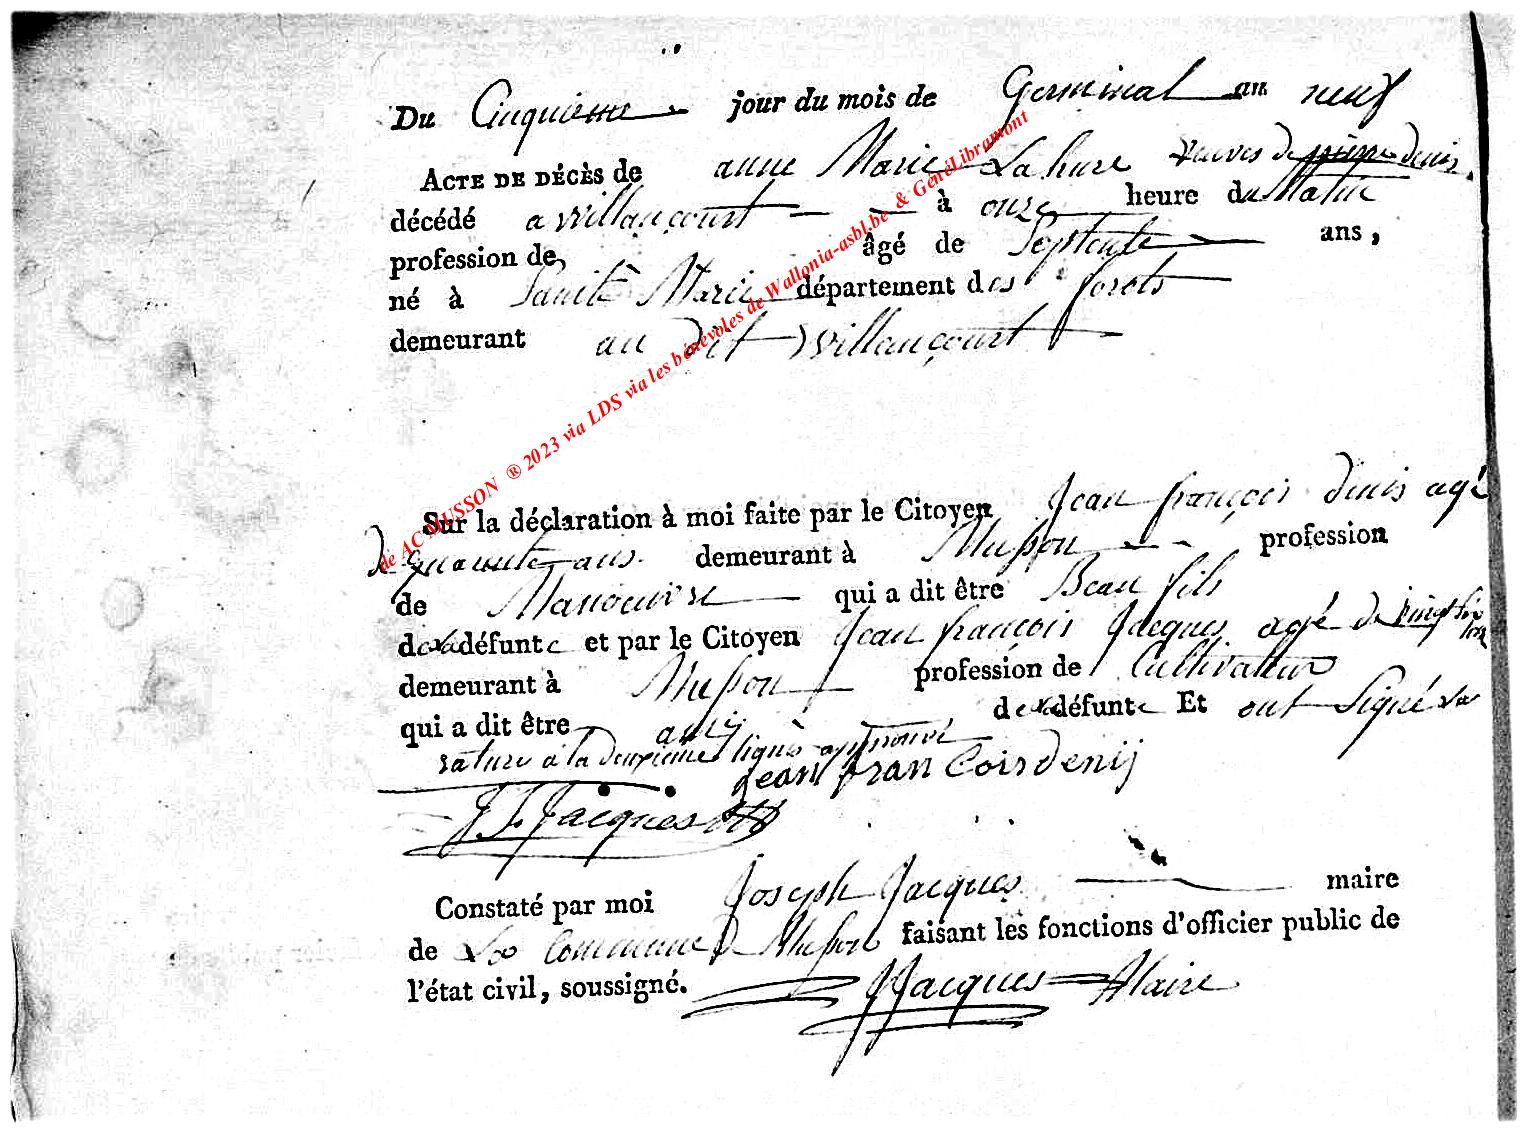 Du Cinquieme jour du mois de Germinal an neuf
ACTE DE DÉCÈS de anne Marie La hure veuves de pierre denis
décédé a Willancourt à onze heure du Matin
profession de âgé de Septente ans,
né à Sainte Marie département des forets
demeurant au dit Willancourt
Sur la déclaration à moi faite par le Citoyen Jean françois denis agé
de quarante ans. demeurant à Musson profession
de Manoeuvre qui a dit être Beau fils
de la défunte et par le Citoyen Jean françois Jacques agé de vingt six ans
demeurant à Musson profession de Cultivateur
qui a dit être ami de la défunte Et ont Signé la
rature a la deuxieme ligne approuvé
jean fran Coisdenij
J. f. Jacques
Constaté par moi Joseph Jacques maire
de La Commune de Musson faisant les fonctions d'officier public de
l'état civil, soussigné. JJacques Maire
de AC MUSSON ® 2023 via LDS via les bénévoles de Wallonia-asbl.be & GénéLibramont